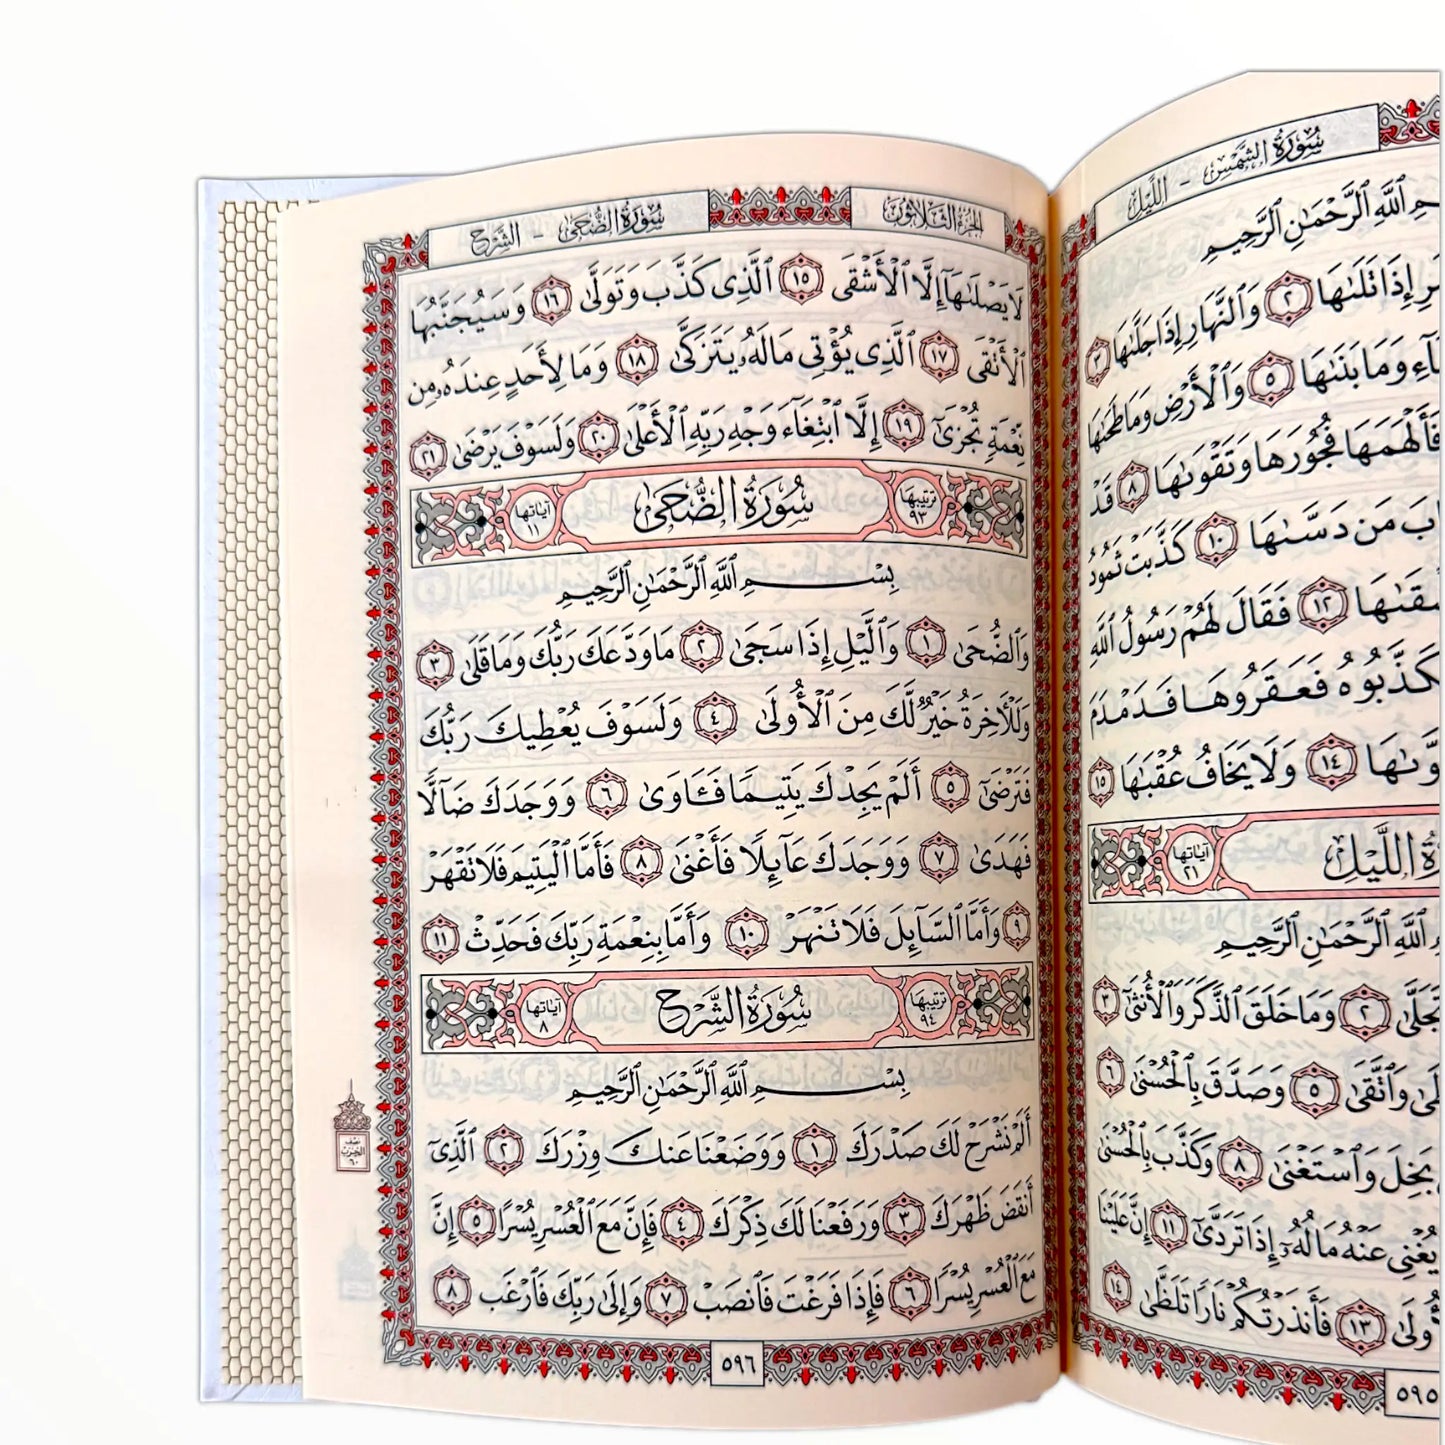 سُورَةُ الشَّمْسِ - اللَّيْلِ
ٱللَّهِ ٱلرَّحْمَٰنِ ٱلرَّحِيمِ
إِذَا تَلَىٰهَا ٢ وَٱلنَّهَارِ إِذَا جَلَّىٰهَا ٣
وَمَا بَنَىٰهَا ٥ وَٱلْأَرْضِ وَمَا طَحَىٰهَا
فَأَلْهَمَهَا فُجُورَهَا وَتَقْوَىٰهَا ٨ قَدْ
مَن دَسَّىٰهَا ١٠ كَذَّبَتْ ثَمُودُ
١٢ فَقَالَ لَهُمْ رَسُولُ ٱللَّهِ
فَعَقَرُوهَا فَدَمْدَمَ
١٤ وَلَا يَخَافُ عُقْبَٰهَا ١٥
ٱللَّيْلِ آيَاتُهَا ٢١
ٱللَّهِ ٱلرَّحْمَٰنِ ٱلرَّحِيمِ
تَجَلَّىٰ ٢ وَمَا خَلَقَ ٱلذَّكَرَ وَٱلْأُنثَىٰٓ ٣
وَٱتَّقَىٰ ٥ وَصَدَّقَ بِٱلْحُسْنَىٰ ٦
بَخِلَ وَٱسْتَغْنَىٰ ٨ وَكَذَّبَ بِٱلْحُسْنَىٰ
يُغْنِى عَنْهُ مَالُهُۥٓ إِذَا تَرَدَّىٰٓ ١١ إِنَّ عَلَيْنَا
١٣ فَأَنذَرْتُكُمْ نَارًا تَلَظَّىٰ ١٤
٥٩٥
الجزء الثلاثون سُورَةُ الضُّحَىٰ - الشَّرْحِ
لَا يَصْلَىٰهَآ إِلَّا ٱلْأَشْقَى ١٥ ٱلَّذِى كَذَّبَ وَتَوَلَّىٰ ١٦ وَسَيُجَنَّبُهَا
ٱلْأَتْقَى ١٧ ٱلَّذِى يُؤْتِى مَالَهُۥ يَتَزَكَّىٰ ١٨ وَمَا لِأَحَدٍ عِندَهُۥ مِن
نِّعْمَةٍ تُجْزَىٰٓ ١٩ إِلَّا ٱبْتِغَآءَ وَجْهِ رَبِّهِ ٱلْأَعْلَىٰ ٢٠ وَلَسَوْفَ يَرْضَىٰ ٢١
ترتيبها ٩٣ سُورَةُ الضُّحَىٰ آياتها ١١
بِسْمِ ٱللَّهِ ٱلرَّحْمَٰنِ ٱلرَّحِيمِ
وَٱلضُّحَىٰ ١ وَٱلَّيْلِ إِذَا سَجَىٰ ٢ مَا وَدَّعَكَ رَبُّكَ وَمَا قَلَىٰ ٣
وَلَلْـَٔاخِرَةُ خَيْرٌ لَّكَ مِنَ ٱلْأُولَىٰ ٤ وَلَسَوْفَ يُعْطِيكَ رَبُّكَ
فَتَرْضَىٰٓ ٥ أَلَمْ يَجِدْكَ يَتِيمًا فَـَٔاوَىٰ ٦ وَوَجَدَكَ ضَآلًّا
فَهَدَىٰ ٧ وَوَجَدَكَ عَآئِلًا فَأَغْنَىٰ ٨ فَأَمَّا ٱلْيَتِيمَ فَلَا تَقْهَرْ
٩ وَأَمَّا ٱلسَّآئِلَ فَلَا تَنْهَرْ ١٠ وَأَمَّا بِنِعْمَةِ رَبِّكَ فَحَدِّثْ ١١
ترتيبها ٩٤ سُورَةُ الشَّرْحِ آياتها ٨
بِسْمِ ٱللَّهِ ٱلرَّحْمَٰنِ ٱلرَّحِيمِ
أَلَمْ نَشْرَحْ لَكَ صَدْرَكَ ١ وَوَضَعْنَا عَنكَ وِزْرَكَ ٢ ٱلَّذِىٓ
أَنقَضَ ظَهْرَكَ ٣ وَرَفَعْنَا لَكَ ذِكْرَكَ ٤ فَإِنَّ مَعَ ٱلْعُسْرِ يُسْرًا ٥ إِنَّ
مَعَ ٱلْعُسْرِ يُسْرًا ٦ فَإِذَا فَرَغْتَ فَٱنصَبْ ٧ وَإِلَىٰ رَبِّكَ فَٱرْغَب ٨
نصف
الحزب
٦٠
٥٩٦